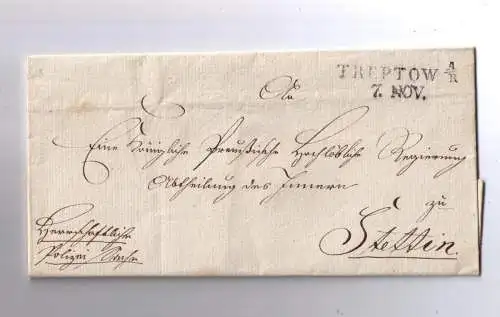 TREPTOW A/R
7. NOV.
An
Eine Königliche Preußische Hochlöbliche Regierung
Abtheilung des Innern
zu
Stettin.
Herrschaftliche
Polizei Sache